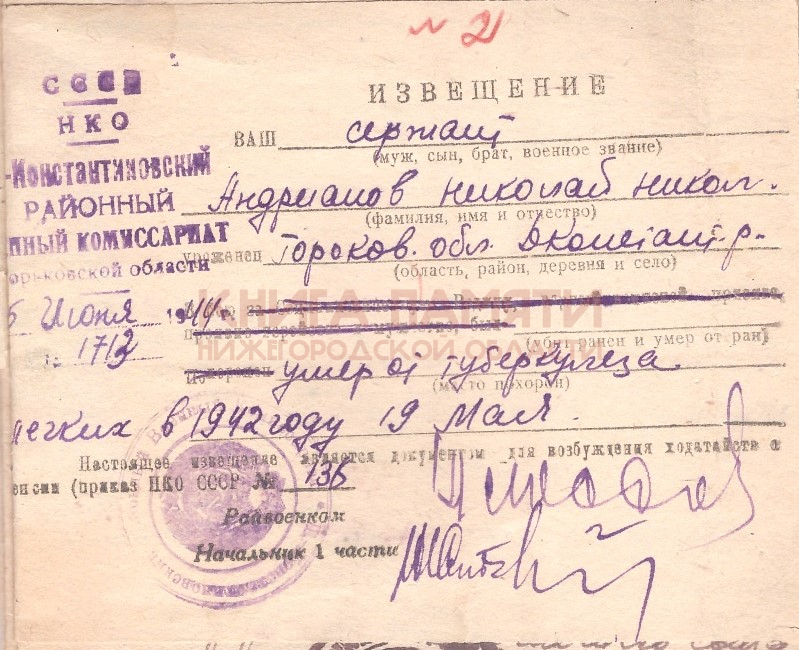 № 21
СССР
НКО
-Константиновский
РАЙОННЫЙ
ННЫЙ КОМИССАРИАТ
орьковской области
5 Июня 1944 г.
№ 1713
ИЗВЕЩЕНИЕ
ВАШ сержант
(муж, сын, брат, военное звание)
Андрианов Николай Никол.
(фамилия, имя и отчество)
уроженец Горьков. обл. Дконстант. р-
(область, район, деревня и село)
КНИГА ПАМЯТИ
НИЖЕГОРОДСКОЙ ОБЛАСТИ
(убит ранен и умер от ран)
Похоронен умер от туберкулеза
(место похорон)
легких в 1942 году 19 Мая.
Настоящее извещение является документом для возбуждения ходатайств о
енсии (приказ НКО СССР № 136
Райвоенком
Начальник 1 части